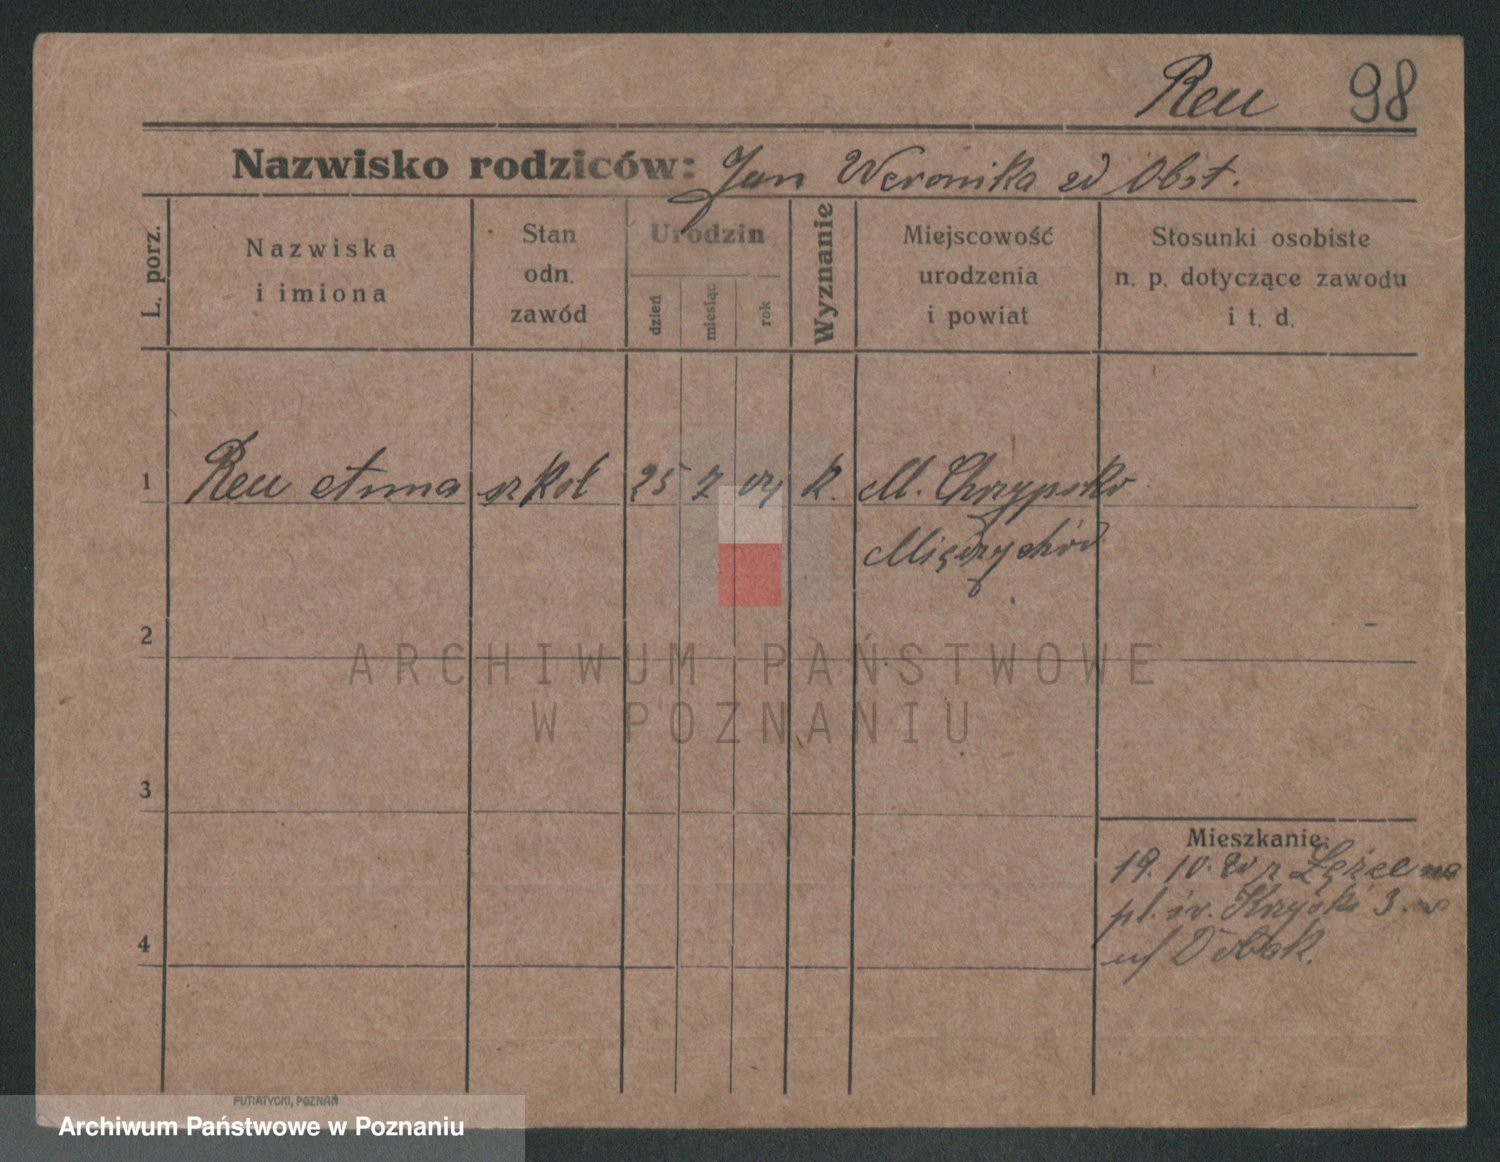 Reu 98
Nazwisko rodziców: Jan Weronika zd Obst.
L. porz.
Nazwiska
i imiona
Stan
odn.
zawód
Urodzin
dzień
miesiąc
rok
Wyznanie
Miejscowość
urodzenia
i powiat
Stosunki osobiste
n. p. dotyczące zawodu
i t. d.
1 Reu Anna 25 7 k. M. Chrzypsko
Międzychód
2
3
4
Mieszkanie:
19. IV. z
pl. św. Krzyski 3.
PUTIATYCKI, POZNAŃ
ARCHIWUM PAŃSTWOWE
W POZNANIU
Archiwum Państwowe w Poznaniu